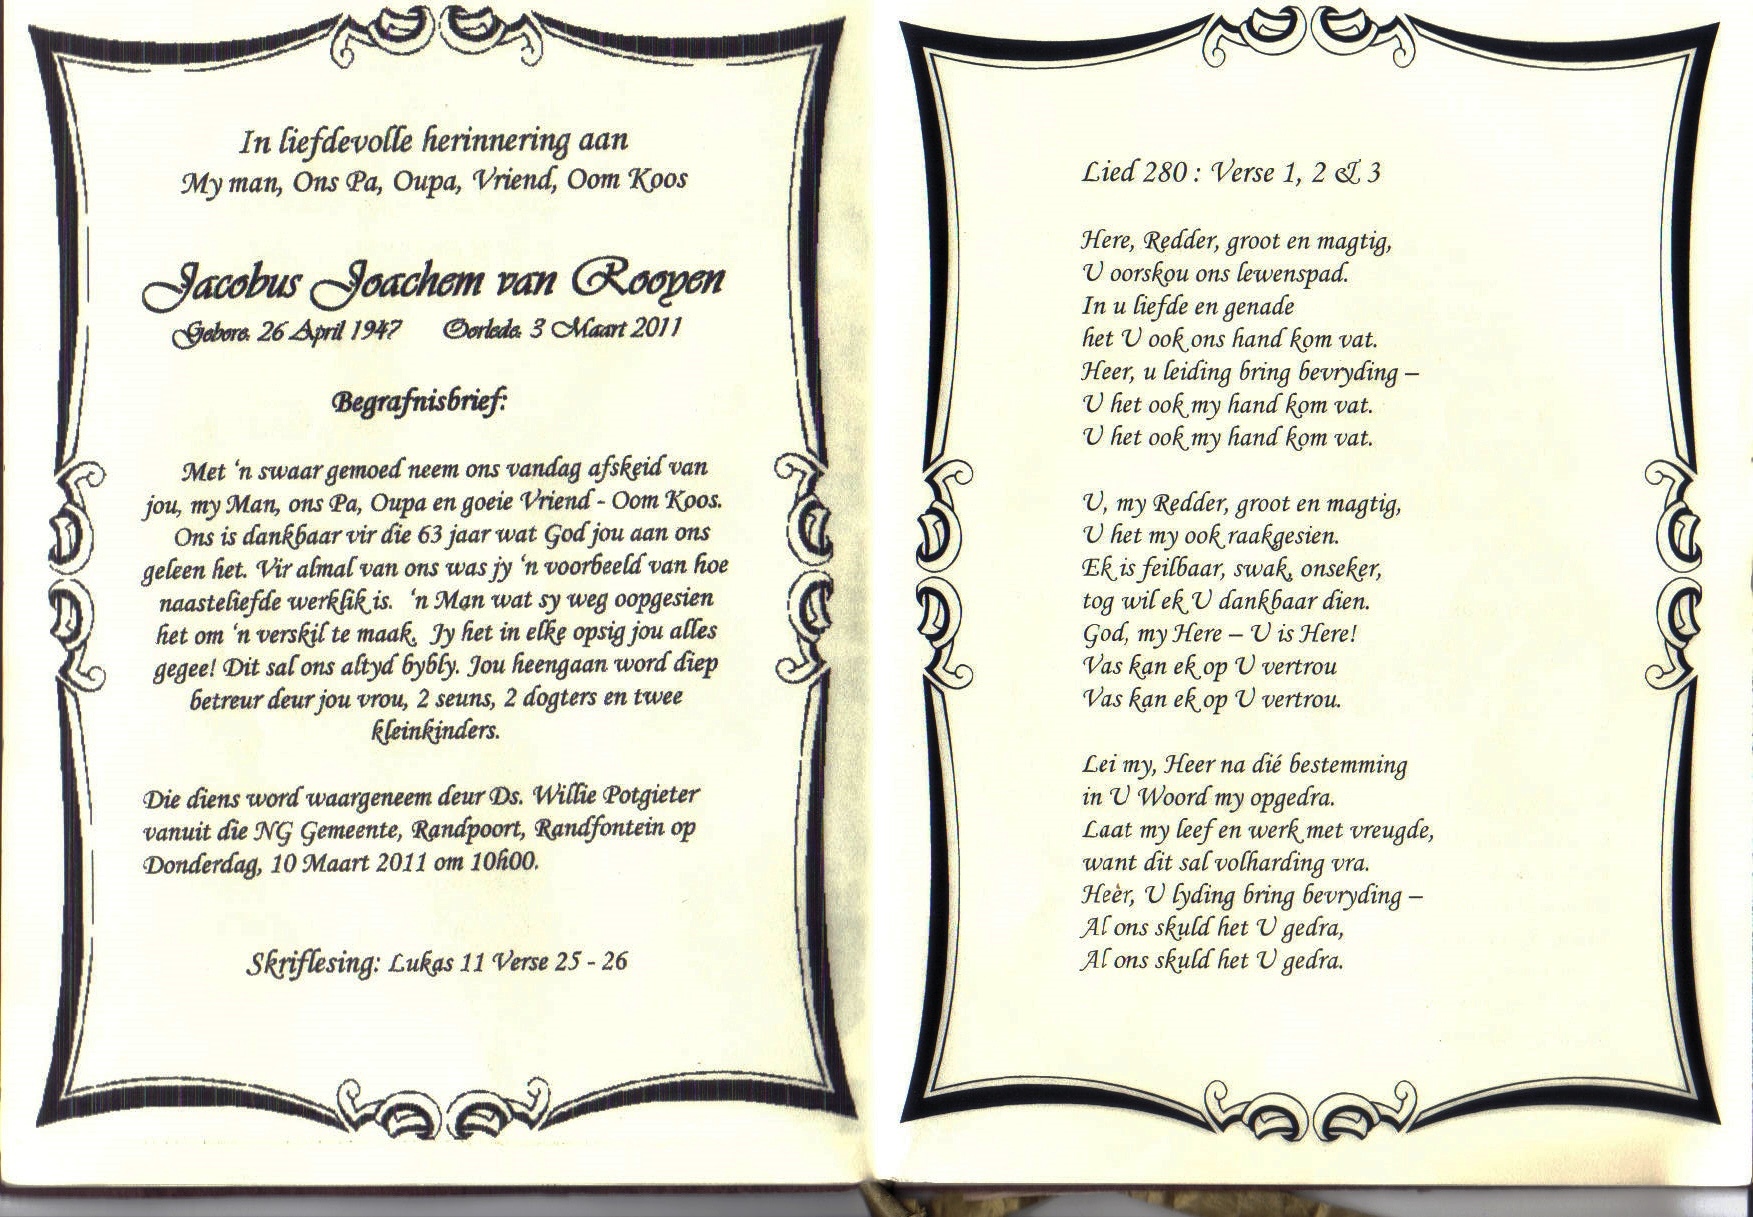 In liefdevolle herinnering aan
My man, Ons Pa, Oupa, Vriend, Oom Koos
Jacobus Joachem van Rooyen
Gebore: 26 April 1947 Oorlede: 3 Maart 2011
Begrafnisbrief:
Met 'n swaar gemoed neem ons vandag afskeid van
jou, my Man, ons Pa, Oupa en goeie Vriend - Oom Koos.
Ons is dankbaar vir die 63 jaar wat God jou aan ons
geleen het. Vir almal van ons was jy 'n voorbeeld van hoe
naasteliefde werklik is. 'n Man wat sy weg oopgesien
het om 'n verskil te maak. Jy het in elke opsig jou alles
gegee! Dit sal ons altyd bybly. Jou heengaan word diep
betreur deur jou vrou, 2 seuns, 2 dogters en twee
kleinkinders.
Die diens word waargeneem deur Ds. Willie Potgieter
vanuit die NG Gemeente, Randpoort, Randfontein op
Donderdag, 10 Maart 2011 om 10h00.
Skriflesing: Lukas 11 Verse 25 - 26
Lied 280 : Verse 1, 2 & 3
Here, Redder, groot en magtig,
U oorskou ons lewenspad.
In u liefde en genade
het U ook ons hand kom vat.
Heer, u leiding bring bevryding –
U het ook my hand kom vat.
U het ook my hand kom vat.
U, my Redder, groot en magtig,
U het my ook raakgesien.
Ek is feilbaar, swak, onseker,
tog wil ek U dankbaar dien.
God, my Here – U is Here!
Vas kan ek op U vertrou
Vas kan ek op U vertrou.
Lei my, Heer na dié bestemming
in U Woord my opgedra.
Laat my leef en werk met vreugde,
want dit sal volharding vra.
Heer, U lyding bring bevryding –
Al ons skuld het U gedra,
Al ons skuld het U gedra.